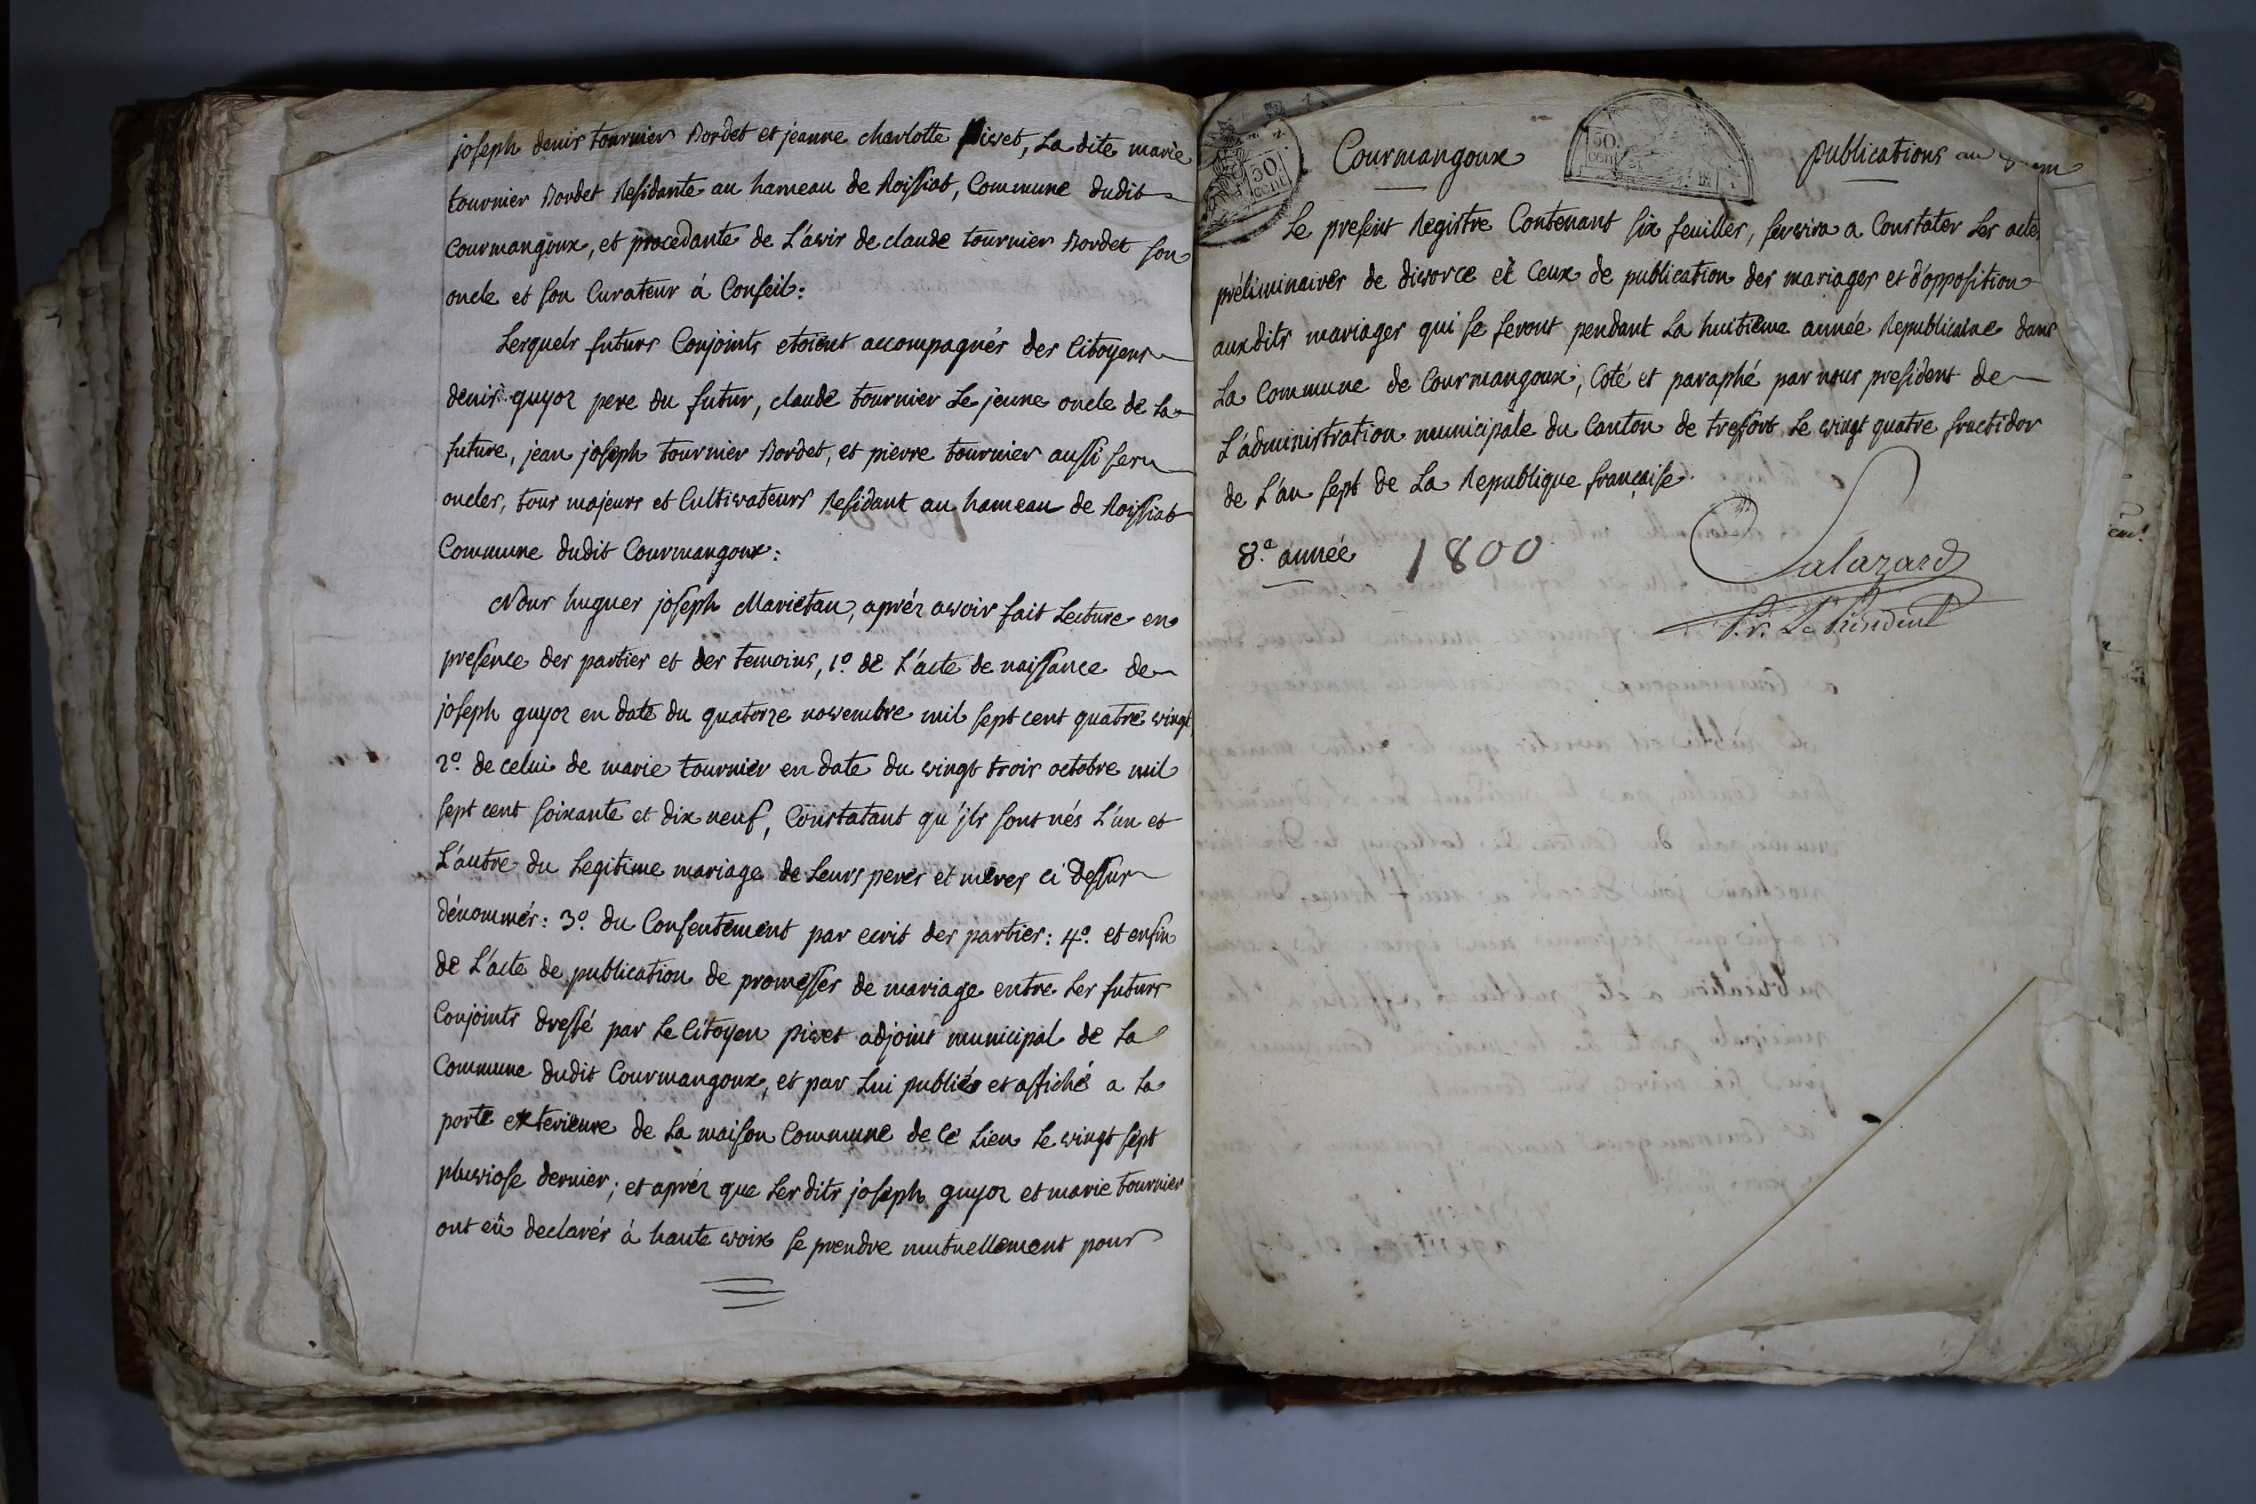 joseph denis tournier Bordet et jeanne charlotte Pivet, La dite marie
tournier Bordet Residante au hameau de Roissiat, Commune dudit
Courmangoux, et procedante de L'avis de claude tournier Bordet son
oncle et son Curateur á Conseil:
Lesquels futurs Conjoints etoient accompagnés des Citoyens
denis guyoz pere du futur, claude tournier Le jeune oncle de La
future, jean joseph tournier Bordet, et pierre tournier aussi ses
oncles, tous majeurs et Cultivateurs Residant au hameau de Roissiat
Commune dudit Courmangoux:
Nous hugues joseph Marietan, aprés avoir fait Lecture en
presence des parties et des temoins, 1.º de L'acte de naissance de
joseph guyoz en date du quatorze novembre mil sept cent quatre vingt
2.º de celui de marie tournier en date du vingt trois octobre mil
sept cent soixante et dix neuf, Constatant qu'ils sont nés L'un et
L'autre du Legitime mariage de Leurs peres et meres ci dessus
dénommés: 3.º du Consentement par ecrit des parties: 4.º et enfin
de L'acte de publication de promesses de mariage entre Les futurs
Conjoints dressé par Le Citoyen pivet adjoint municipal de La
Commune dudit Courmangoux, et par Lui publiés et affiché a La
porte exterieure de La maison Commune de Ce Lieu Le vingt sept
pluviose dernier; et aprés que Les dits joseph guyoz et marie tournier
ont eû declarés á haute voix se prendre mutuellement pour
50 cent
Courmangoux
50. cent
publications an
Le present Registre Contenant six feuilles, servira a Constater Les actes
préliminaires de divorce et Ceux de publication des mariages et d'opposition
auxdits mariages qui se feront pendant La huitieme année Republicaine dans
La Commune de Courmangoux; Coté et paraphé par nous president de
L'administration municipale du Canton de treffort Le vingt quatre fructidor
de L'an sept de La Republique française.
8.e année 1800
Salazard
Le President